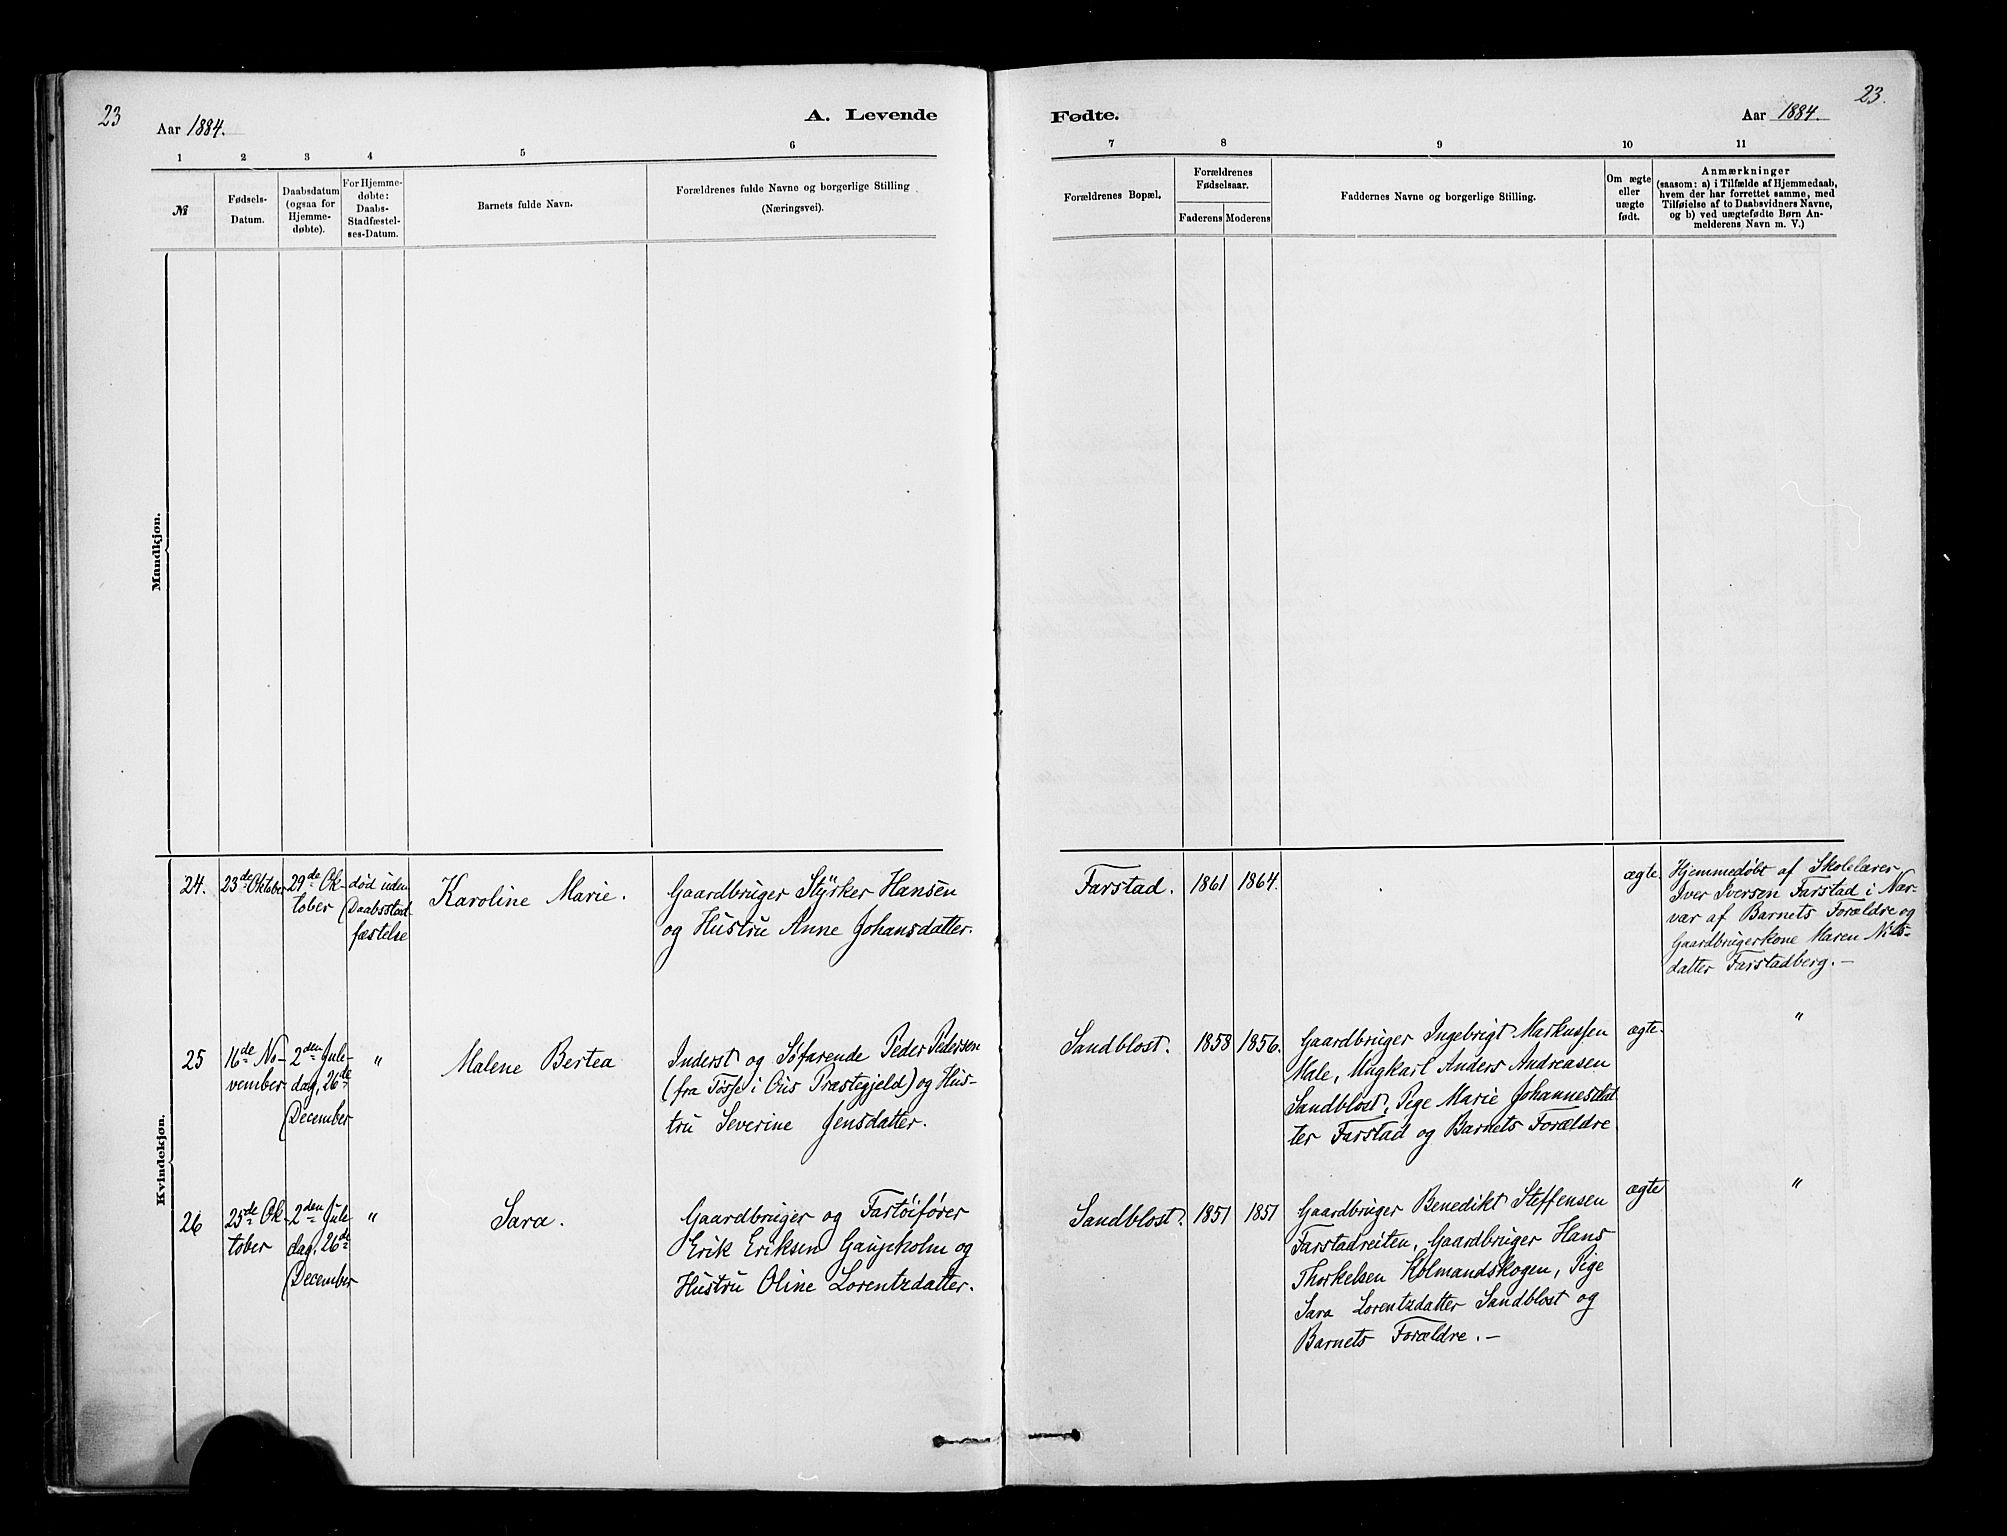 23
Aar 1884.
A. Levende
Fødte.
Aar 1884.
23.
1 2 3 4 5 6
7 8 9 10 11
№
Fødsels-
Datum.
Daabsdatum
(ogsaa for
Hjemme-
døbte).
For Hjemme-
døbte:
Daabs-
Stadfæstel-
ses-Datum.
Barnets fulde Navn.
Forældrenes fulde Navne og borgerlige Stilling
(Næringsvei).
Forældrenes Bopæl.
Forældrenes
Fødselsaar.
Faderens Moderens
Faddernes Navne og borgerlige Stilling.
Om ægte
eller
uægte
født.
Anmærkninger
(saasom: a) i Tilfælde af Hjemmedaab,
hvem der har forrettet samme, med
Tilføielse af to Daabsvidners Navne,
og b) ved uægtefødte Børn An-
melderens Navn m. V.)
Mandkjøn.
Kvindekjøn.
24.
23de Oktober
29de Ok-
tober
død uden
Daabsstad
fæstelse
Karoline Marie.
Gaardbruger Styrker Hansen
og Hustru Anne Johansdatter.
Farstad.
1861
1864.
ægte
Hjemmedøbt af Skolelærer
Iver Iversen Farstad i Nær-
vær af Barnets Forældre og
Gaardbrugerkone Maren Nils-
datter Farstadberg. —
25
16de No-
vember
2den Jule-
dag, 26de
December
"
Malene Bertea
Inderst og Søfarende Peder Pedersen
(fra Tosse i Ous Præstegjeld) og Hus-
tru Severine Jensdatter.
Sandblost.
1858
1856.
Gaardbruger Ingebrigt Markussen
Male, Ungkarl Anders Andreasen
Sandblost, Pige Marie Johannesdat
ter Farstad og Barnets Forældre
ægte.
"
26
25de Ok-
tober
2den Jule-
dag, 26de
December
"
Sara.
Gaardbruger og Fartøifører
Erik Eriksen Gaupholm og
Hustru Oline Lorentzdatter.
Sandblost.
1851
1851
Gaardbruger Benedikt Steffensen
Farstadreiten, Gaardbruger Hans
Thorkelsen Kolmandskogen, Pige
Sara Lorentzdatter Sandblost og
Barnets Forældre. —
ægte
"